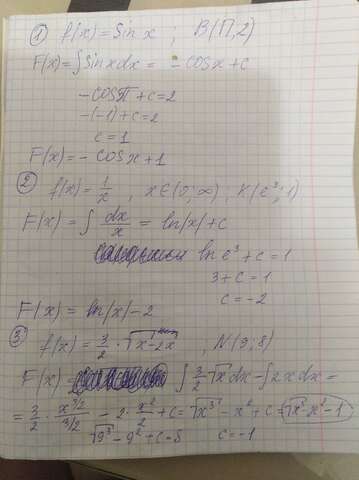 ① f(x) = sin x ; B(П, 2)
F(x) = ∫ sin x dx = - cos x + c
- cos π + c = 2
-(-1) + c = 2
c = 1
F(x) = - cos x + 1
② f(x) = 1/x , x ∈ (0; ∞) ; K(e³; 1)
F(x) = ∫ dx/x = ln|x| + c
ln e³ + c = 1
3 + c = 1
c = -2
F(x) = ln|x| - 2
③ f(x) = 3/2 · √x - 2x , N(9; 8)
F(x) = ∫ 3/2 √x dx - ∫ 2x dx =
= 3/2 · x^(3/2)/(3/2) - 2 · x²/2 + c = √x³ - x² + c = √x³ - x² - 1
√9³ - 9² + c = 8 c = -1